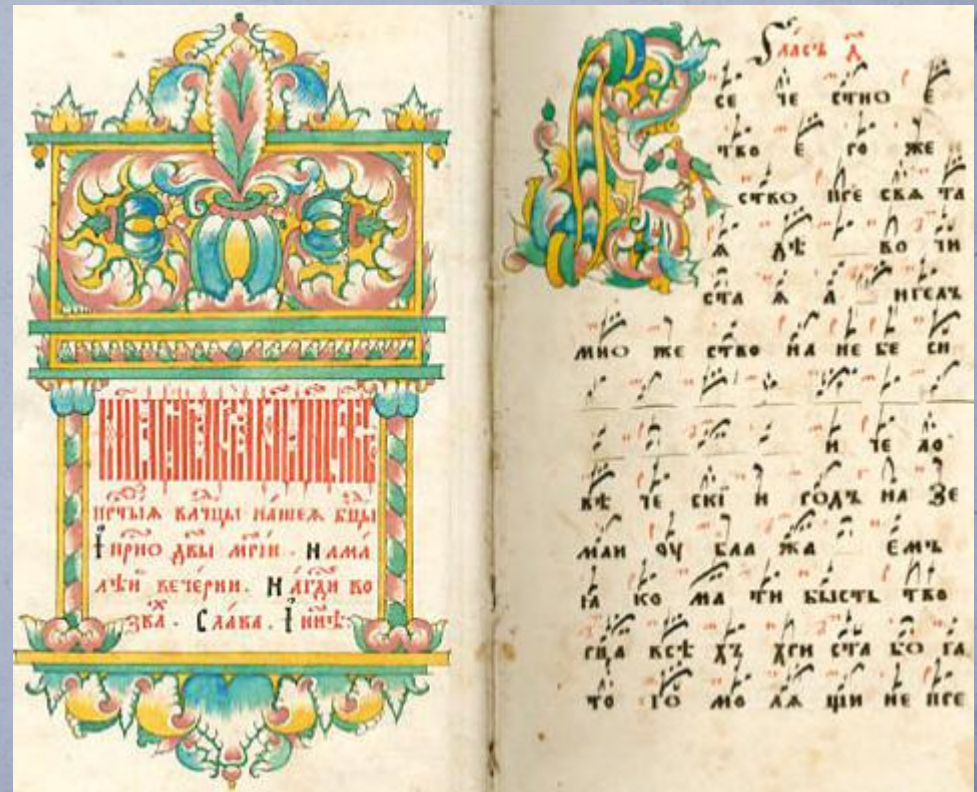 прⷭ҇чтыѧ влⷣчцы на́шеѧ бцⷣы
І҆ приⷭ҇но двы мр҃іи. На ма́
лѣи вече́рни. На гдⷭ҇и во
зва́хъ. Сла́ва. І҆ нн҃ѣ:
Гла́съ а҃
В
се че стно е
тво е го же
ство пре свѧ та
ѧ дѣ во чи
ста ѧ а нгелъ
мно же ство на не бе си
и че ло
вѣ че скі и родъ на зе
мли оу бла жа емъ
ꙗ ко ма ти бысть тво
рца всѣ хъ хри ста бо га
то го мо лѧ щи не пре